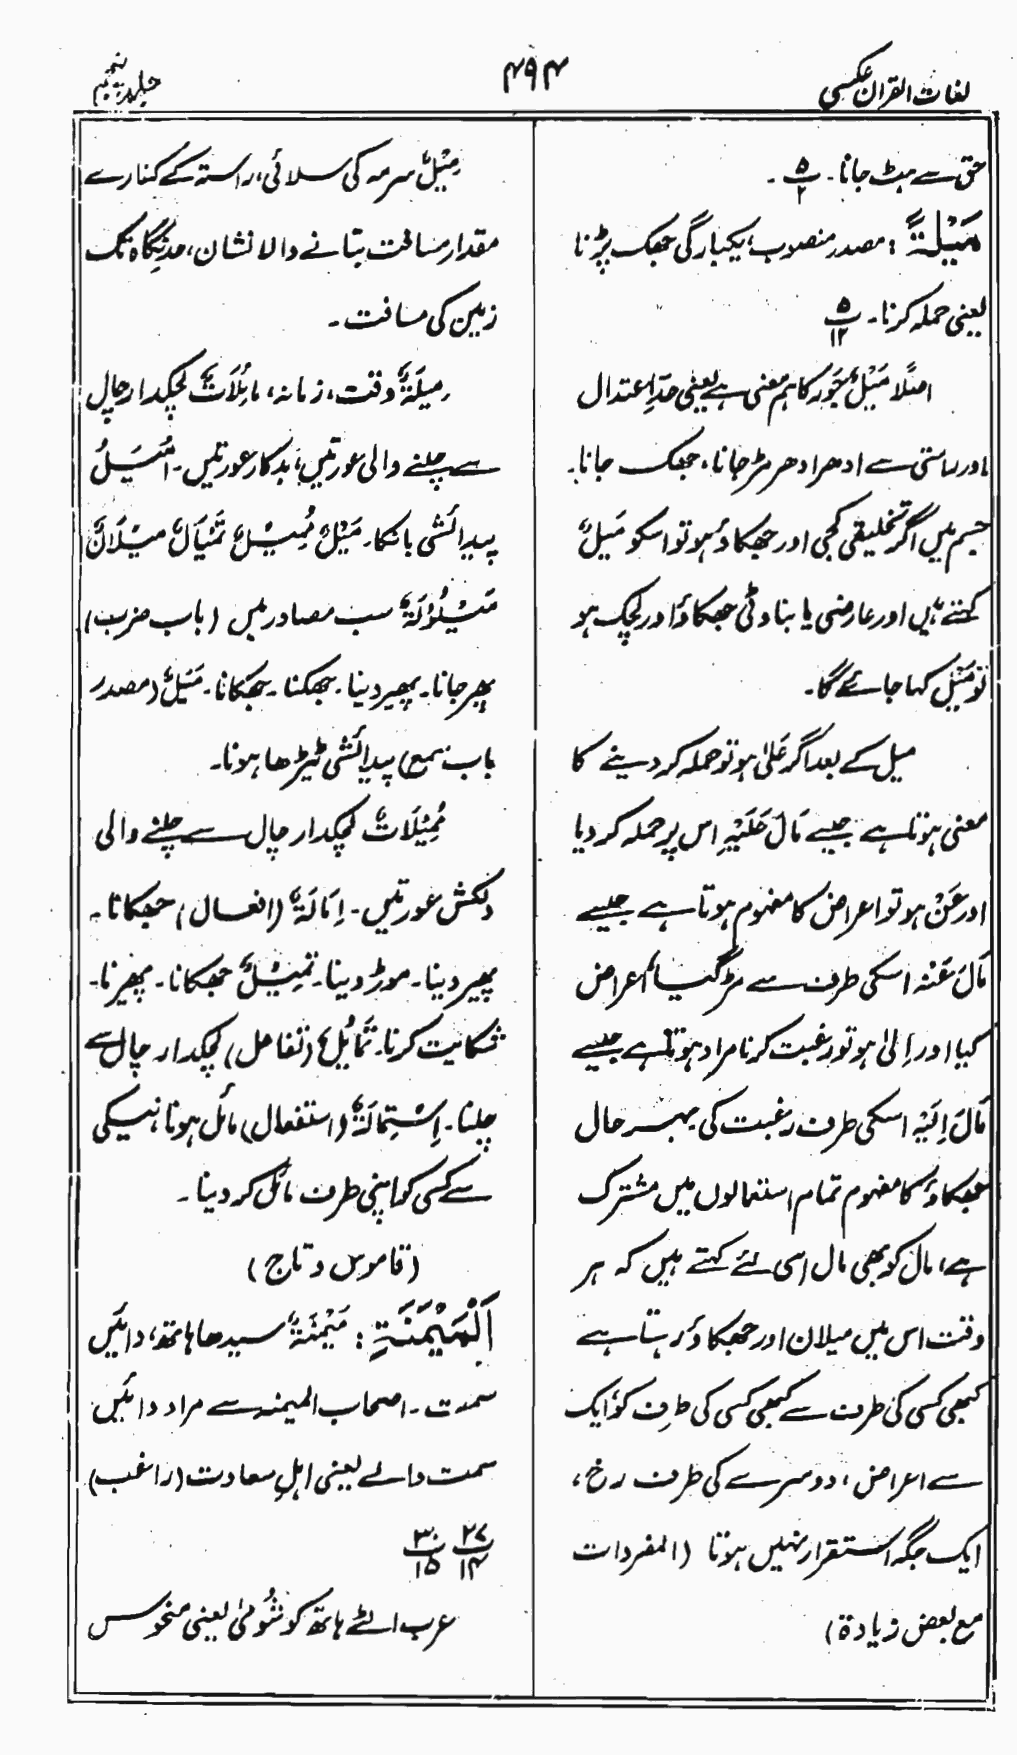 لغات القرآن عکسی
۴۹۴
جلد پنجم
حق سے ہٹ جانا۔ ۵/۲ ۔
مَیْلَۃً : مصدر منصوب، یکبارگی جھک پڑنا
یعنی حملہ کرنا۔ ۵/۱۲
اصلاً مَیْلٌ جَور کا ہم معنی ہے یعنی حدِّ اعتدال
اور راستی سے ادھر ادھر مڑ جانا، جھک جانا۔
جسم میں اگر تخلیقی کجی اور جھکاؤ ہو تو اسکو مَیَلٌ
کہتے ہیں اور عارضی یا بناوٹی جھکاؤ اور لچک ہو
تو مَیْل کہا جائے گا۔
میل کے بعد اگر عَلیٰ ہو تو حملہ کر دینے کا
معنی ہوتا ہے جیسے مَالَ عَلَیْہِ اس پر حملہ کر دیا
اور عَنْ ہو تو اعراض کا مفہوم ہوتا ہے جیسے
مَالَ عَنْہ اسکی طرف سے مڑ گیا، اعراض
کیا اور اِلیٰ ہو تو رغبت کرنا مراد ہوتا ہے جیسے
مَالَ اِلَیْہِ اسکی طرف رغبت کی بہرحال
جھکاؤ کا مفہوم تمام استعمالوں میں مشترک
ہے، مال کو بھی مال اسی لئے کہتے ہیں کہ ہر
وقت اس میں میلان اور جھکاؤ رہتا ہے
کبھی کسی کی طرف سے کبھی کسی کی طرف کو، ایک
سے اعراض، دوسرے کی طرف رخ،
ایک جگہ استقرار نہیں ہوتا (المفردات
مع بعض زیادۃ)
مِیْلٌ سرمہ کی سلائی، راستہ کے کنارے
مقدار مسافت بتانے والا نشان، مدِّ نگاہ تک
زمین کی مسافت۔
مِیلَۃٌ وقت، زمانہ، مائلاتٌ لچکدار چال
سے چلنے والی عورتیں، بدکار عورتیں۔ اَمْیَلُ
پیدائشی بانکا۔ مَیْلٌ مَمِیْلٌ تَمْیَالٌ مَیْلَانٌ
مَیْلُوْلَۃٌ سب مصادر ہیں (باب ضرب)
پھر جانا۔ پھیر دینا۔ جھکنا۔ جھکانا۔ مَیَلٌ (مصدر
باب سمع) پیدائشی ٹیڑھا ہونا۔
مُمِیْلَاتٌ لچکدار چال سے چلنے والی
دلکش عورتیں۔ اِمَالَۃٌ (افعال) جھکانا۔
پھیر دینا۔ موڑ دینا۔ تَمْیِیْلٌ جھکانا۔ پھیرنا۔
شکایت کرنا۔ تَمَایُلٌ (تفاعل) لچکدار چال سے
چلنا۔ اِسْتِمَالَۃٌ (استفعال) مائل ہونا، نیکی
سے کسی کو اپنی طرف مائل کر دینا۔
(قاموس و تاج)
اَلْمَیْمَنَۃِ : مَیْمَنَۃٌ سیدھا ہاتھ، دائیں
سمت۔ اصحاب المیمنہ سے مراد دائیں
سمت والے یعنی اہلِ سعادت (راغب)
۲۷/۱۴ ۳۰/۱۵
عرب الٹے ہاتھ کو شُومیٰ یعنی منحوس